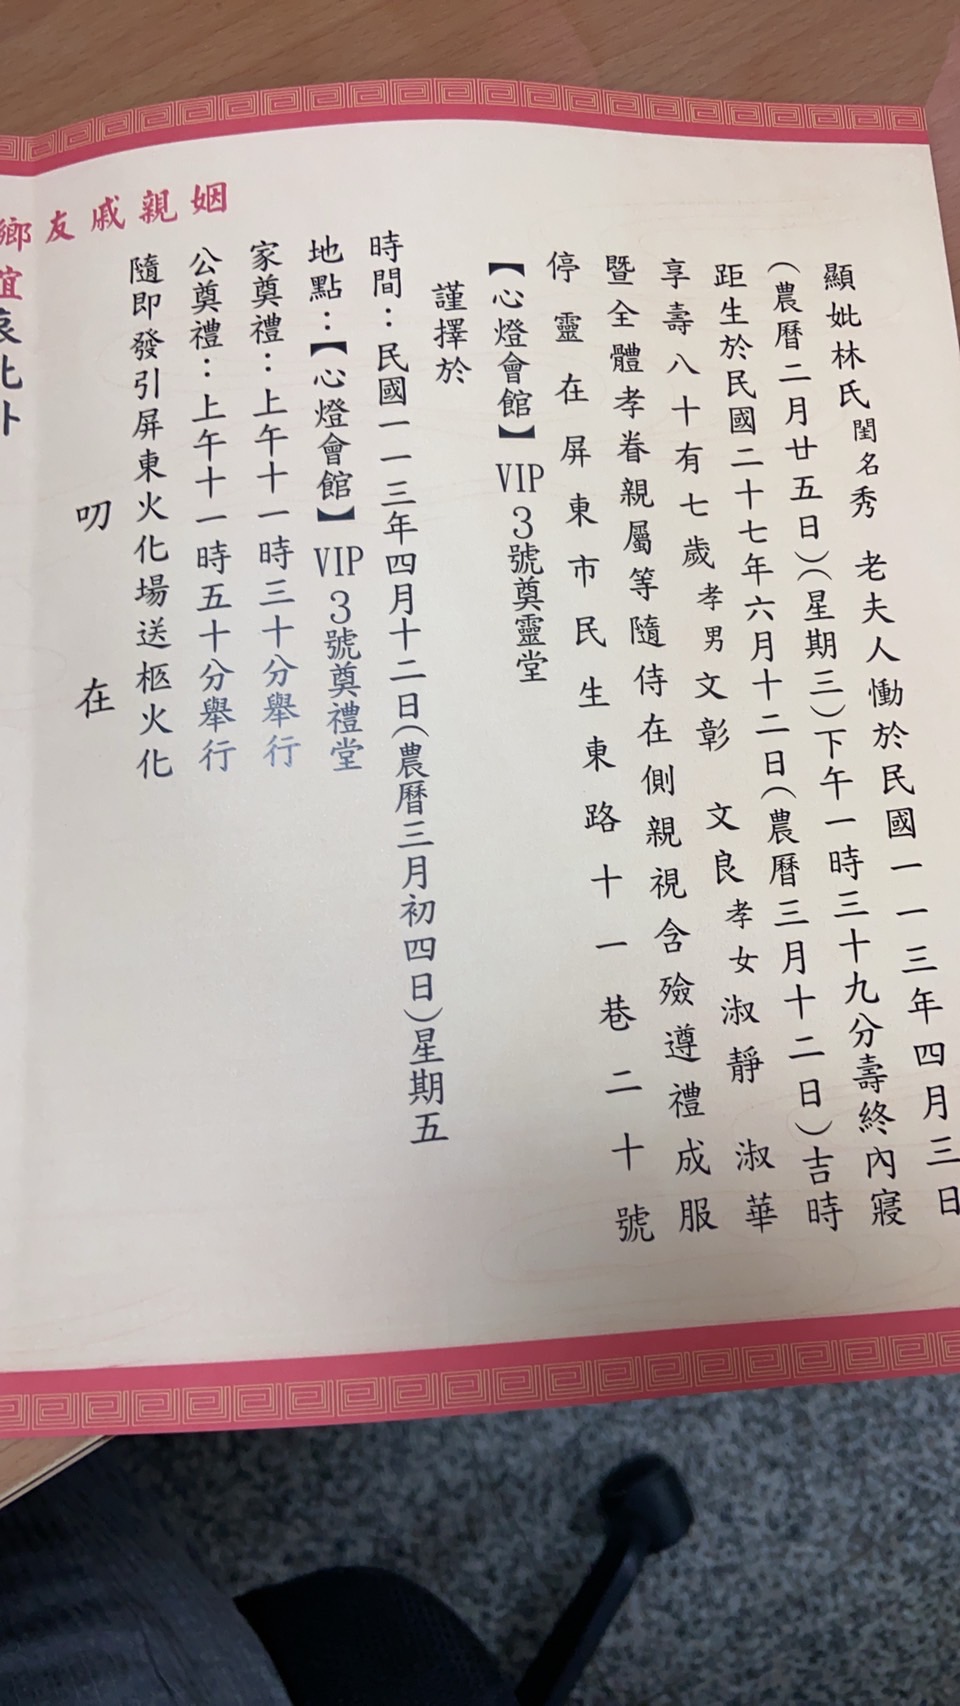 顯妣林氏閨名秀　老夫人慟於民國一一三年四月三日
(農曆二月廿五日)(星期三)下午一時三十九分壽終內寢
距生於民國二十七年六月十二日(農曆三月十二日)吉時
享壽八十有七歲孝男文彰　文良孝女淑靜　淑華
暨全體孝眷親屬等隨侍在側親視含殮遵禮成服
停靈在屏東市民生東路十一巷二十號
【心燈會館】VIP3號奠靈堂
謹擇於
時間：民國一一三年四月十二日(農曆三月初四日)星期五
地點：【心燈會館】VIP3號奠禮堂
家奠禮：上午十一時三十分舉行
公奠禮：上午十一時五十分舉行
隨即發引屏東火化場送柩火化
叨在
姻親戚友鄉
誼哀此訃